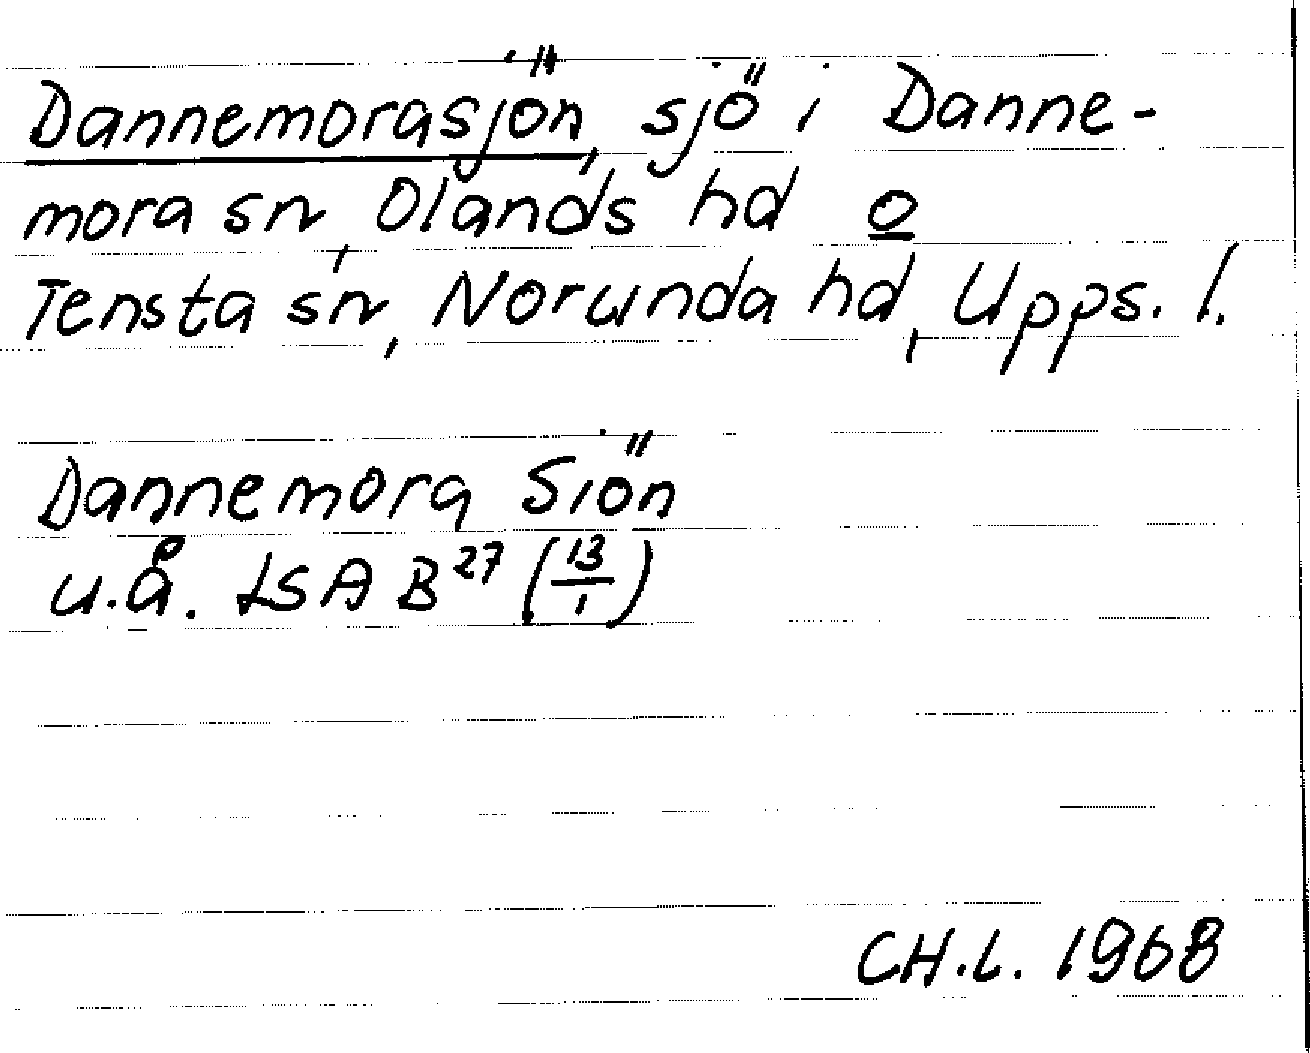 Dannemorasjön, sjö i Danne-
mora sn, Olands hd o
Tensta sn, Norunda hd, Upps. l.
Dannemora Siön
u.å. LSA B²⁷ (13/1)
CH.L. 1968